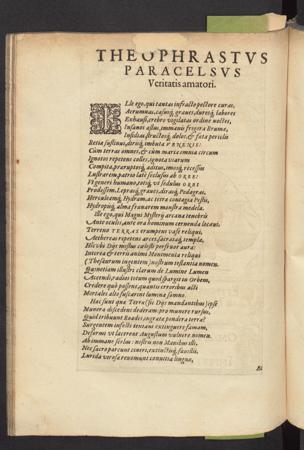 THEOPHRASTVS
PARACELSVS
Veritatis amatori.
ILle ego, qui tantas infracto pectore curas,
Aerumnas, casusq́, graues, durosq́ labores
Exhausi, crebro vigilatas ordine noctes,
Insanos æstus, immanis frigora Brumæ,
Insidias structosq́, dolos, & fata periclis
Bella sustinui, dirisq́, imbuta VENENIS:
Cùm terras omnes, & cùm maria omnia circum
Ignotos repetens colles, ignota viarum
Compita, præruptosq́, aditus, imosq́, recessus
Lustrarem patrio latè seclusus ab ORBE:
Vt generi humano, totiq́, vt sedulus ORBI
Prodessem, Lepraq́, graues, dirasq́, Podagras,
Herculeamq́, Hydram, ac tetra contagia Pestis,
Hydropisq́, alma fraenarem monstra medela.
Ille ego, qui Magni Mysterij arcana tenebris
Ante oculos, ante ora hominum cernenda locaui.
Terreno TERRAS vase reliqui,
Aethereas repetens arces sacrataq́, templa,
Hic vbi Dijs missus cælestis perfruor aura:
Interea & terris animi Monumenta reliqui
(Thesaurum ingentem) nostrum testantia nomen.
Quinetiam illustri clarum de Lumine Lumen
Accendi, radios totum quod spargit in Orbem,
Credens quò possent, quantis erroribus acti
Mortales alto suscitarent lumina somno.
Hac sunt qua Terra (sic Dijs mandantibus) ipse
Munera discedens dederam: pro munere rursus,
Quid tribuunt Roades, ingrata pondera terræ?
Surgentem infestis tentant extinguere famam,
Deformi vt lacerent Augustum vulnere nomen.
Ab immane scelus: nostris non Manibus illi,
Nec sacro parcunt cineri, extinctisq́, fauillis,
Lurida verosa reuomunt conuitia lingua,
Et